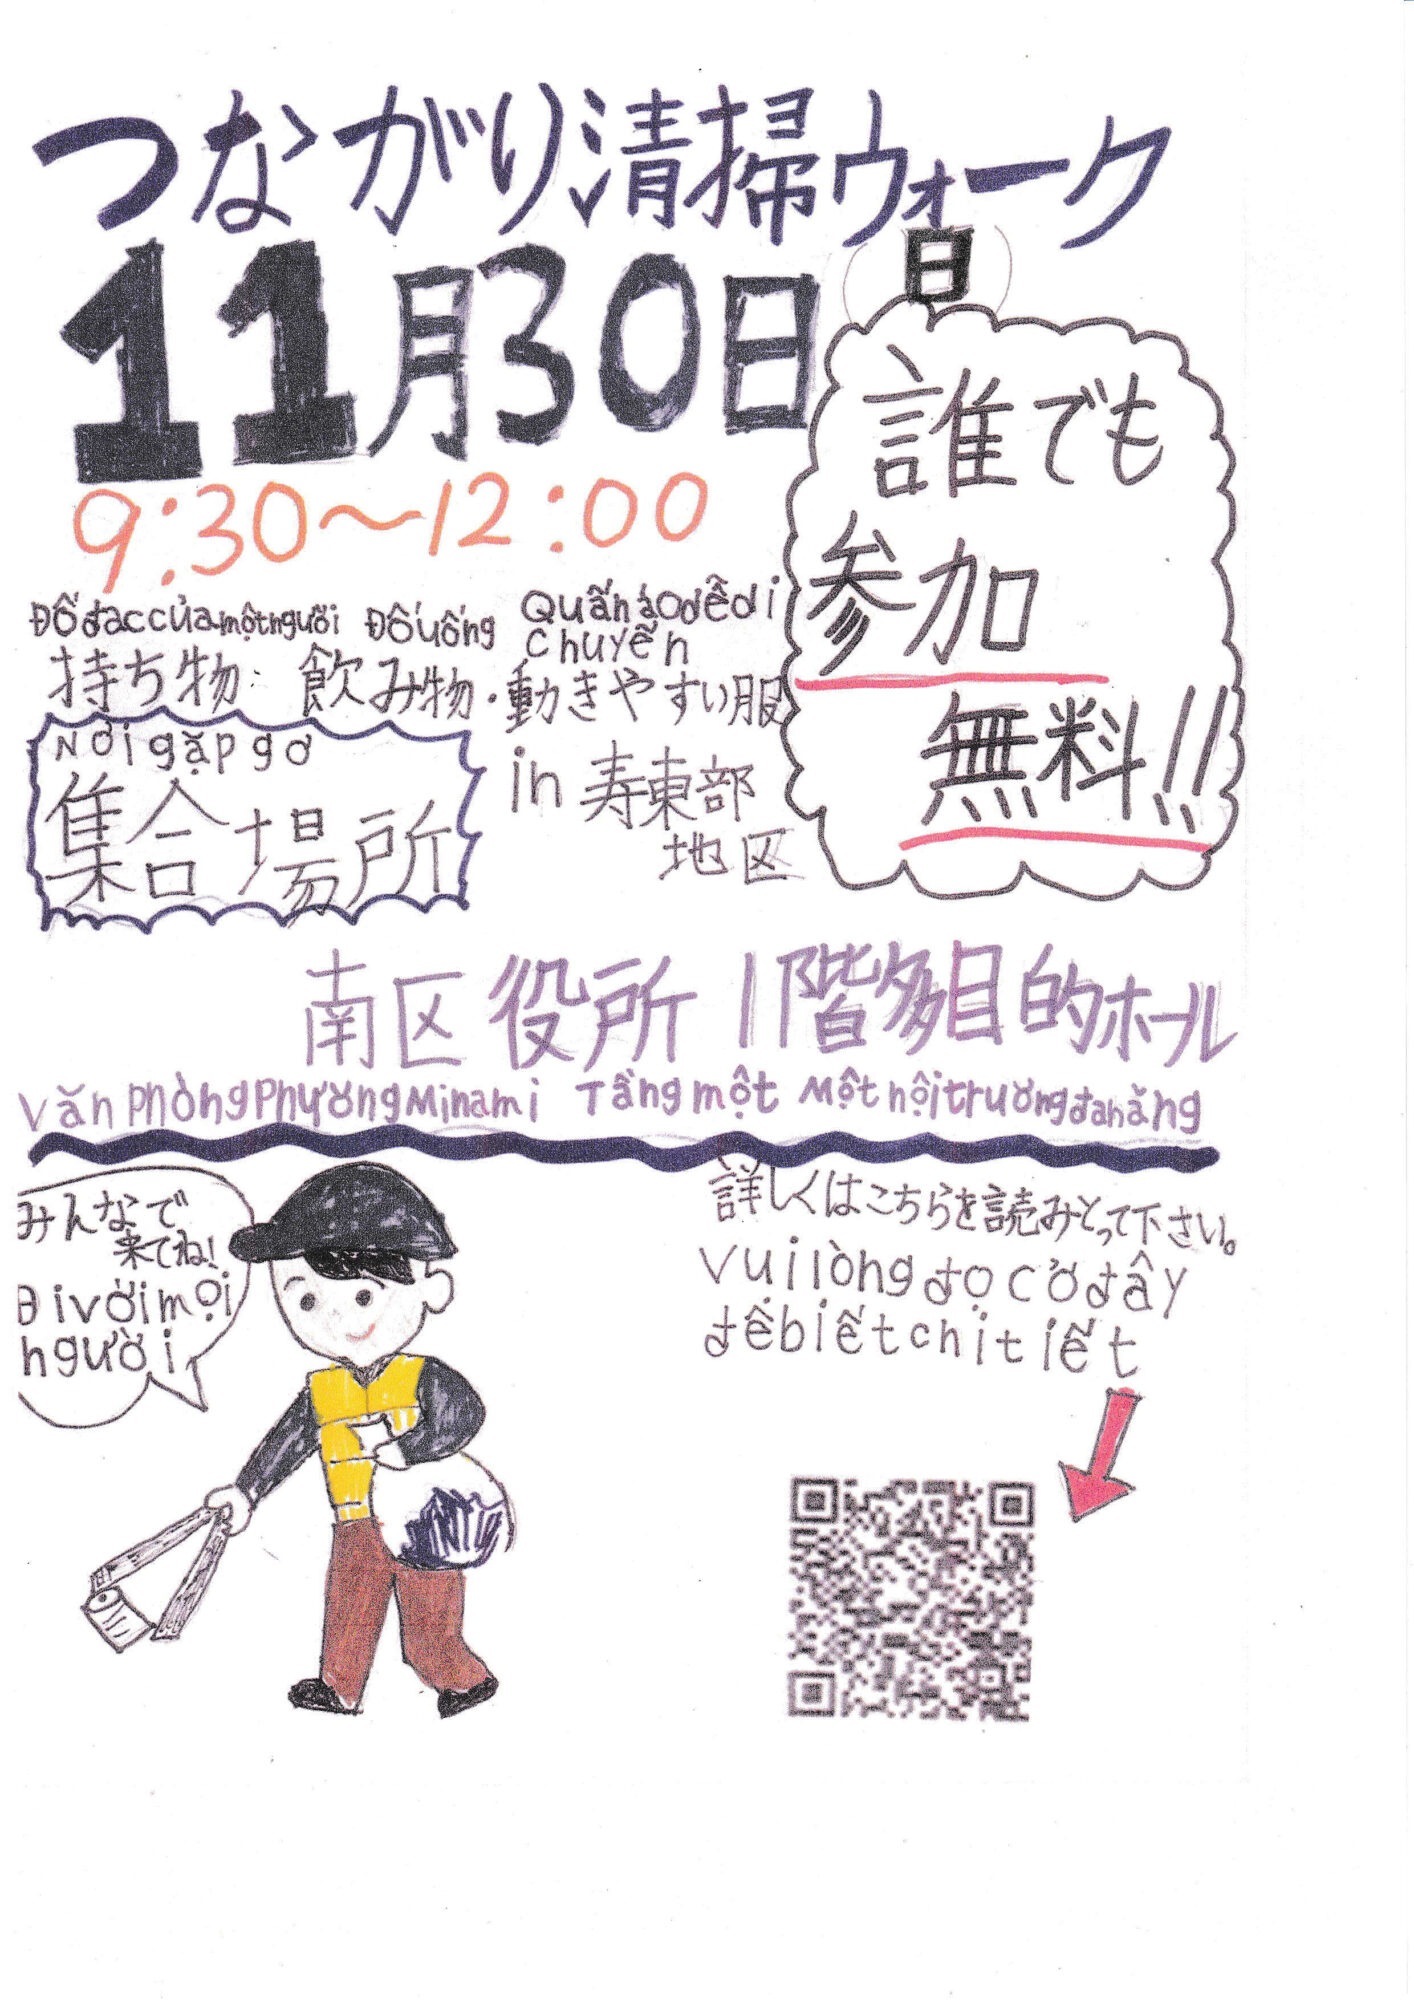 つながり清掃ウォーク
11月30日(日)
9:30~12:00
誰でも
参加
無料!!
Đố đạc của một người Đố uống Quấn áo dề di chuyển
持ち物: 飲み物・動きやすい服
Nơi gặp gơ
集合場所
in 寿東部
地区
南区役所 1階多目的ホール
Văn Phòng Phường Minami Tầng một Một hội trường đa năng
みんなで
来てね!
Đi với mọi
người
詳しくはこちらを読みとって下さい。
Vui lòng đọ cở đây
để biết chi tiết